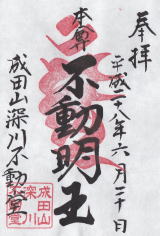 奉拝
平成二十八年六月二十日
本尊
不動明王
成田山深川不動堂
成田山
深川
不動堂